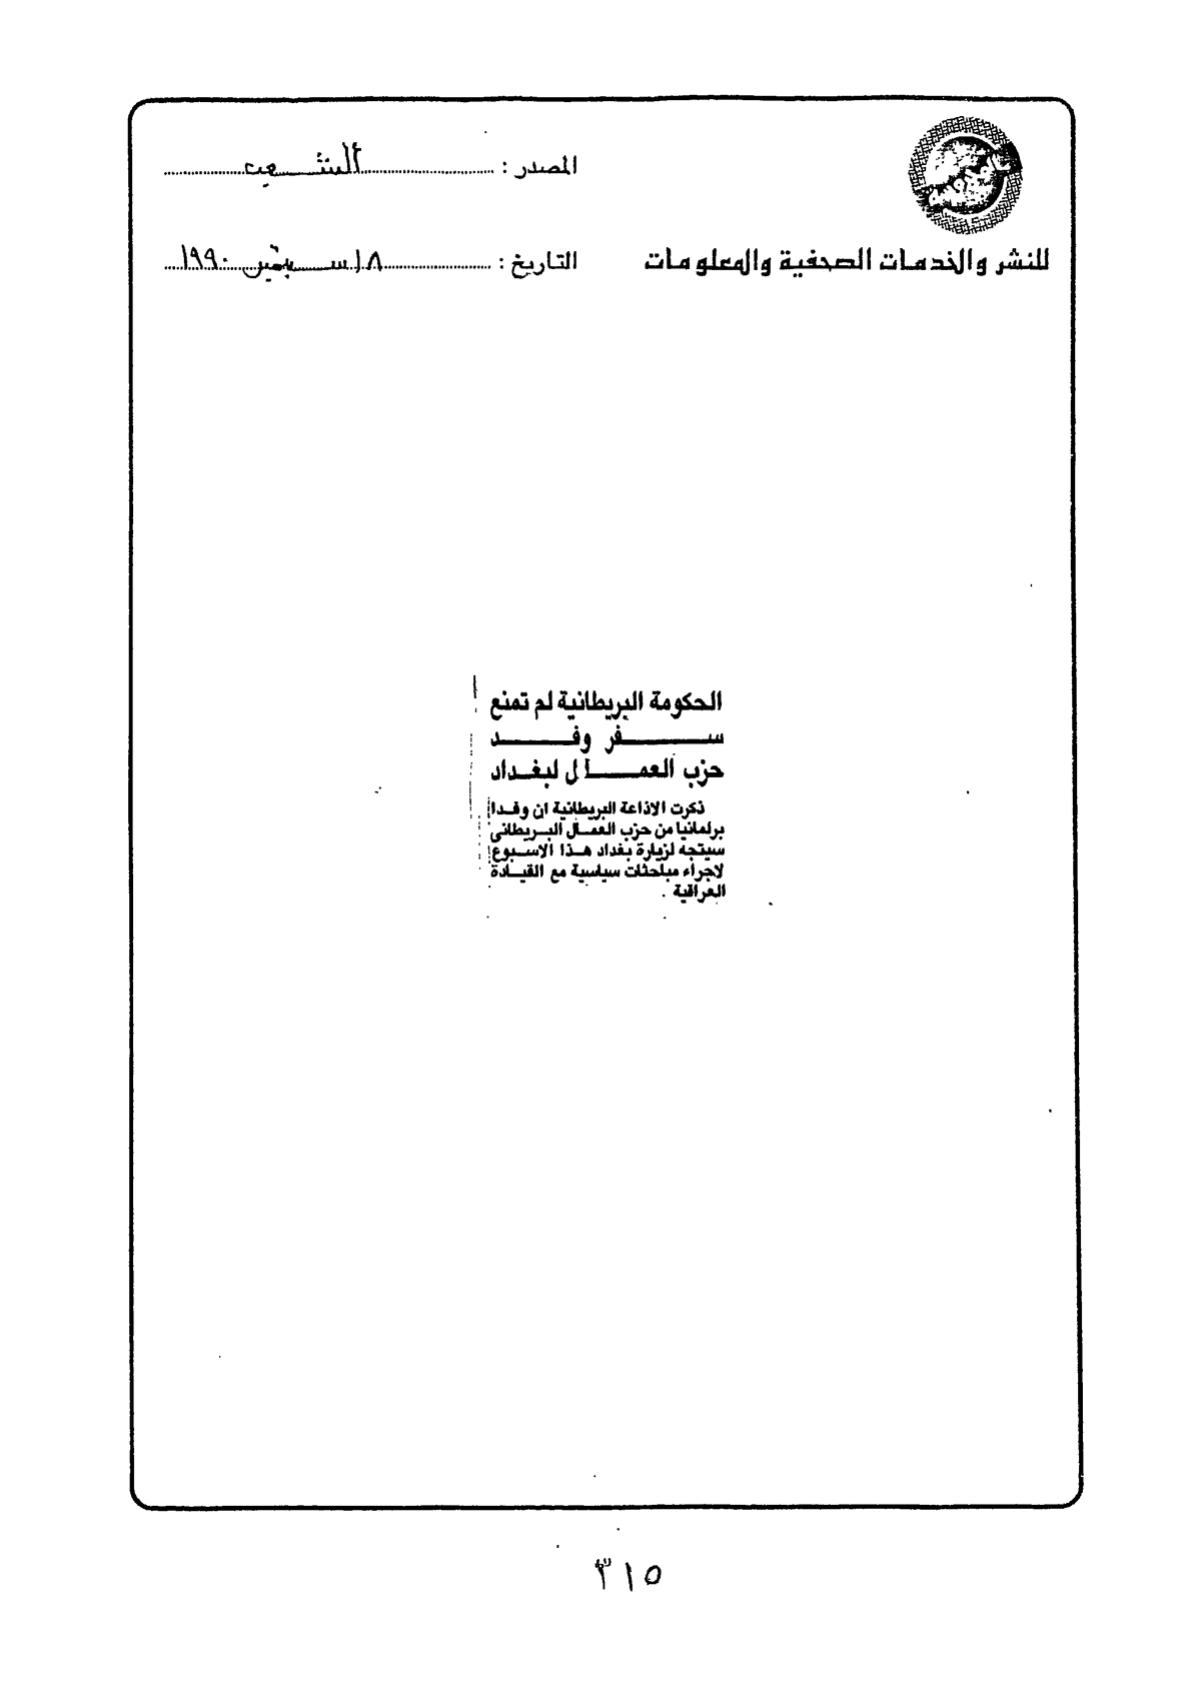 المصدر : الشعب
للنشر والخدمات الصحفية والمعلومات
التاريخ : ١٨ سبتمبر ١٩٩٠
الحكومة البريطانية لم تمنع
سفر وفد
حزب العمال لبغداد
ذكرت الاذاعة البريطانية ان وفدا
برلمانيا من حزب العمال البريطانى
سيتجه لزيارة بغداد هذا الاسبوع
لاجراء مباحثات سياسية مع القيادة
العراقية .
٣١٥